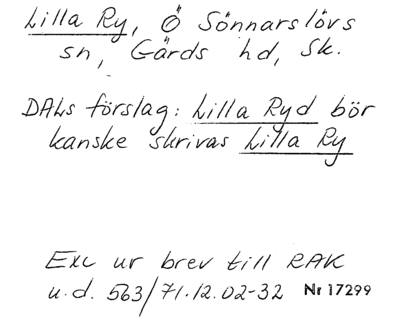 Lilla Ry, Ö Sönnarslövs
sn, Gärds hd, Sk.
DALs förslag: Lilla Ryd bör
kanske skrivas Lilla Ry
Exc ur brev till RAK
u.d. 563/71.12.02-32 Nr 17299